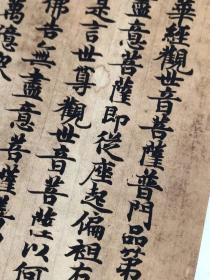 華經觀世音菩薩普門品第
盡意菩薩即從座起偏袒右
是言世尊觀世音菩薩以何
佛告無盡意菩薩善
萬億眾